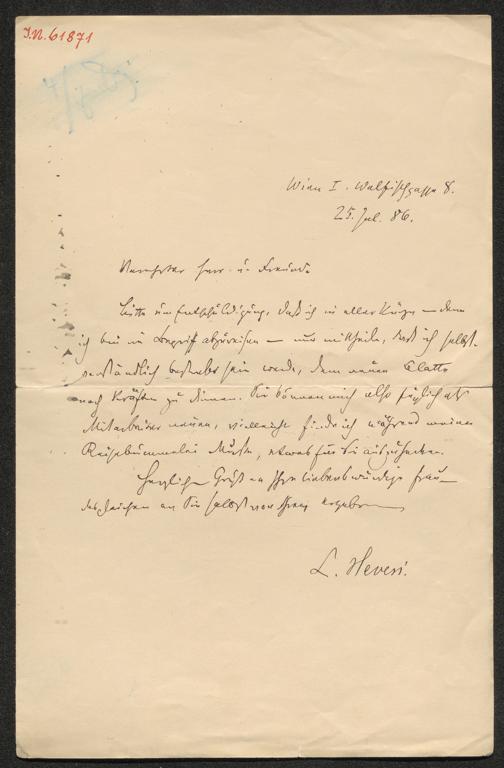 I.N. 61871
Wien I. Walfischgasse 8.
25. Jul. 86.
Verehrter Herr u. Freund.
Bitte um Entschuldigung, daß ich in aller Kürze – denn
ich bin im Begriff abzureisen – nur mittheile, daß ich selbst-
verständlich bestrebt sein werde, dem neuen Blatte
nach Kräften zu dienen. Sie können mich also füglich als
Mitarbeiter nennen, vielleicht finde ich während meiner
Reisebummelei Muße, etwas für Sie auszuhecken.
Herzlichen Gruß an Ihre liebenswürdige Frau
desgleichen an Sie selbst von Ihrem ergebenen
L. Hevesi.